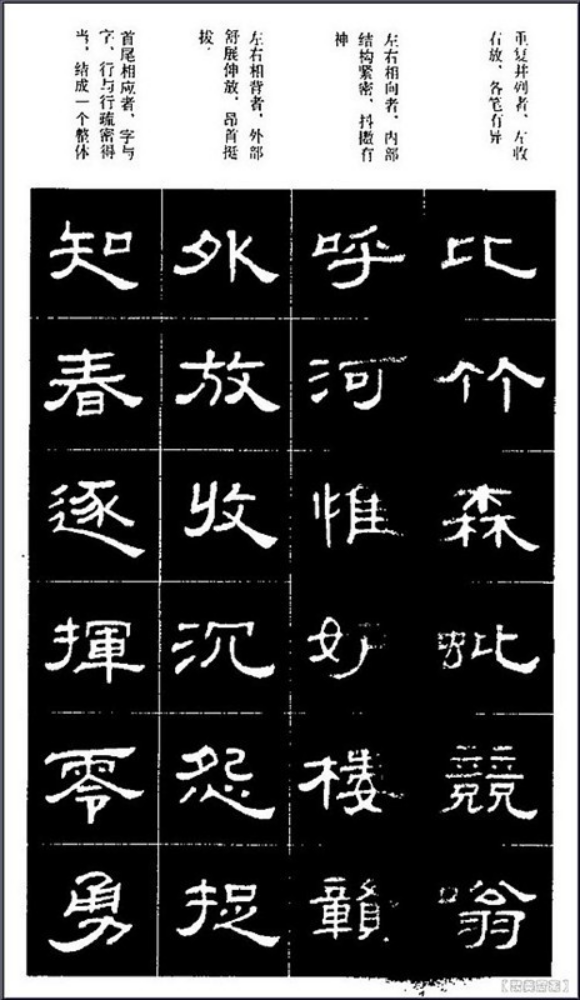 重复并列者、左收
右放、各笔有异
左右相向者、内部
结构紧密、抖擞有
神
左右相背者、外部
舒展伸放、昂首挺
拔、
首尾相应者、字与
字、行与行疏密得
当、结成一个整体
比竹森吡競嗡
呼河惟好楼贛
外放收沉怨捉
知春逐揮零勇